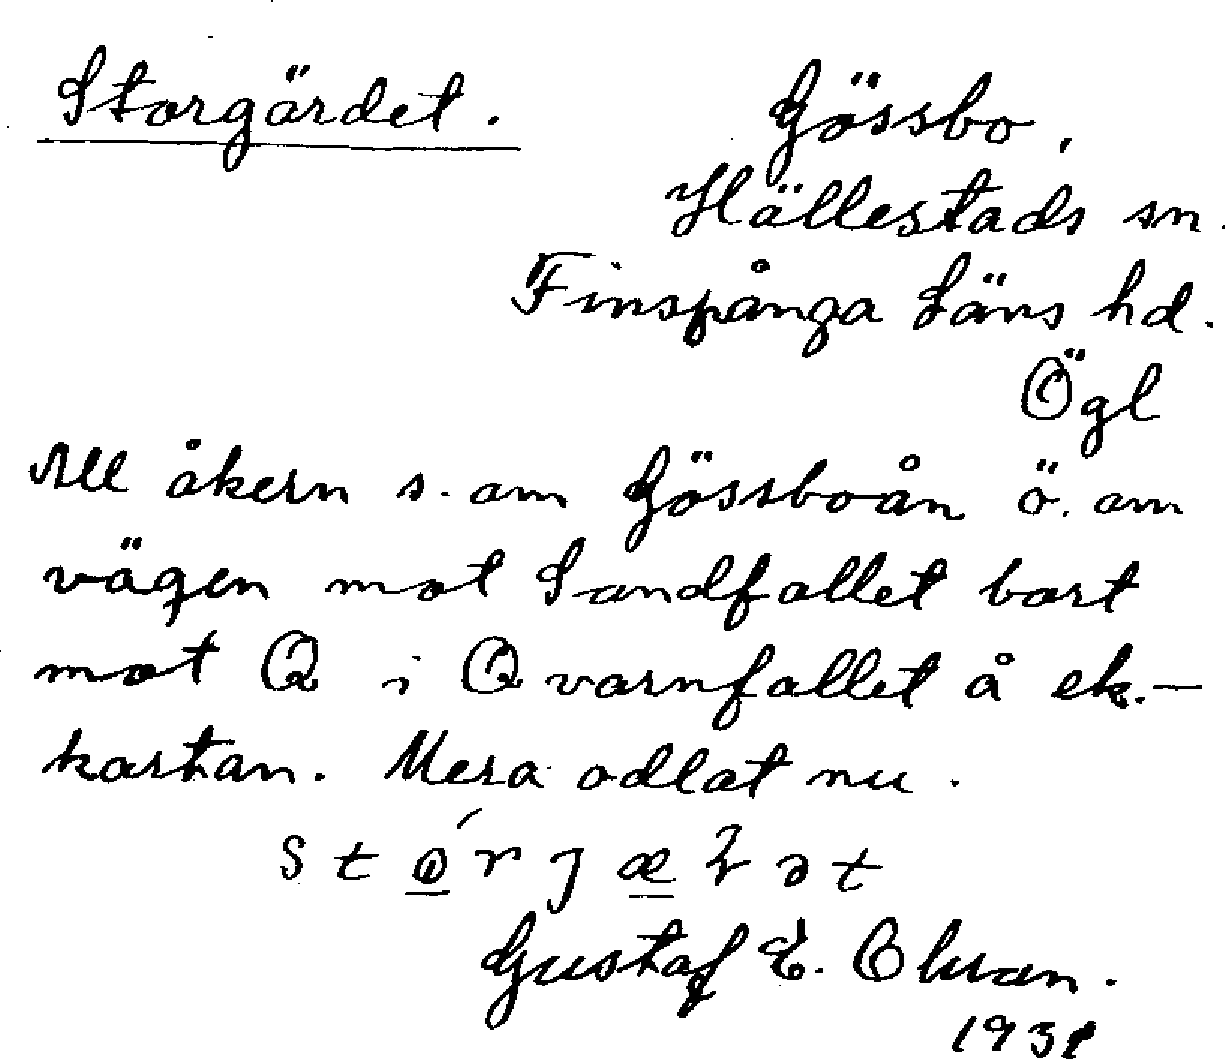 Storgärdet.
Gössbo,
Hällestads sn.
Finspånga Läns hd.
Ögl
All åkern s. om Gössboån ö. om
vägen mot Sandfallet bort
mot Q i Qvarnfallet å ek.-
kartan. Mera odlat nu.
Gustaf E. Olsson.